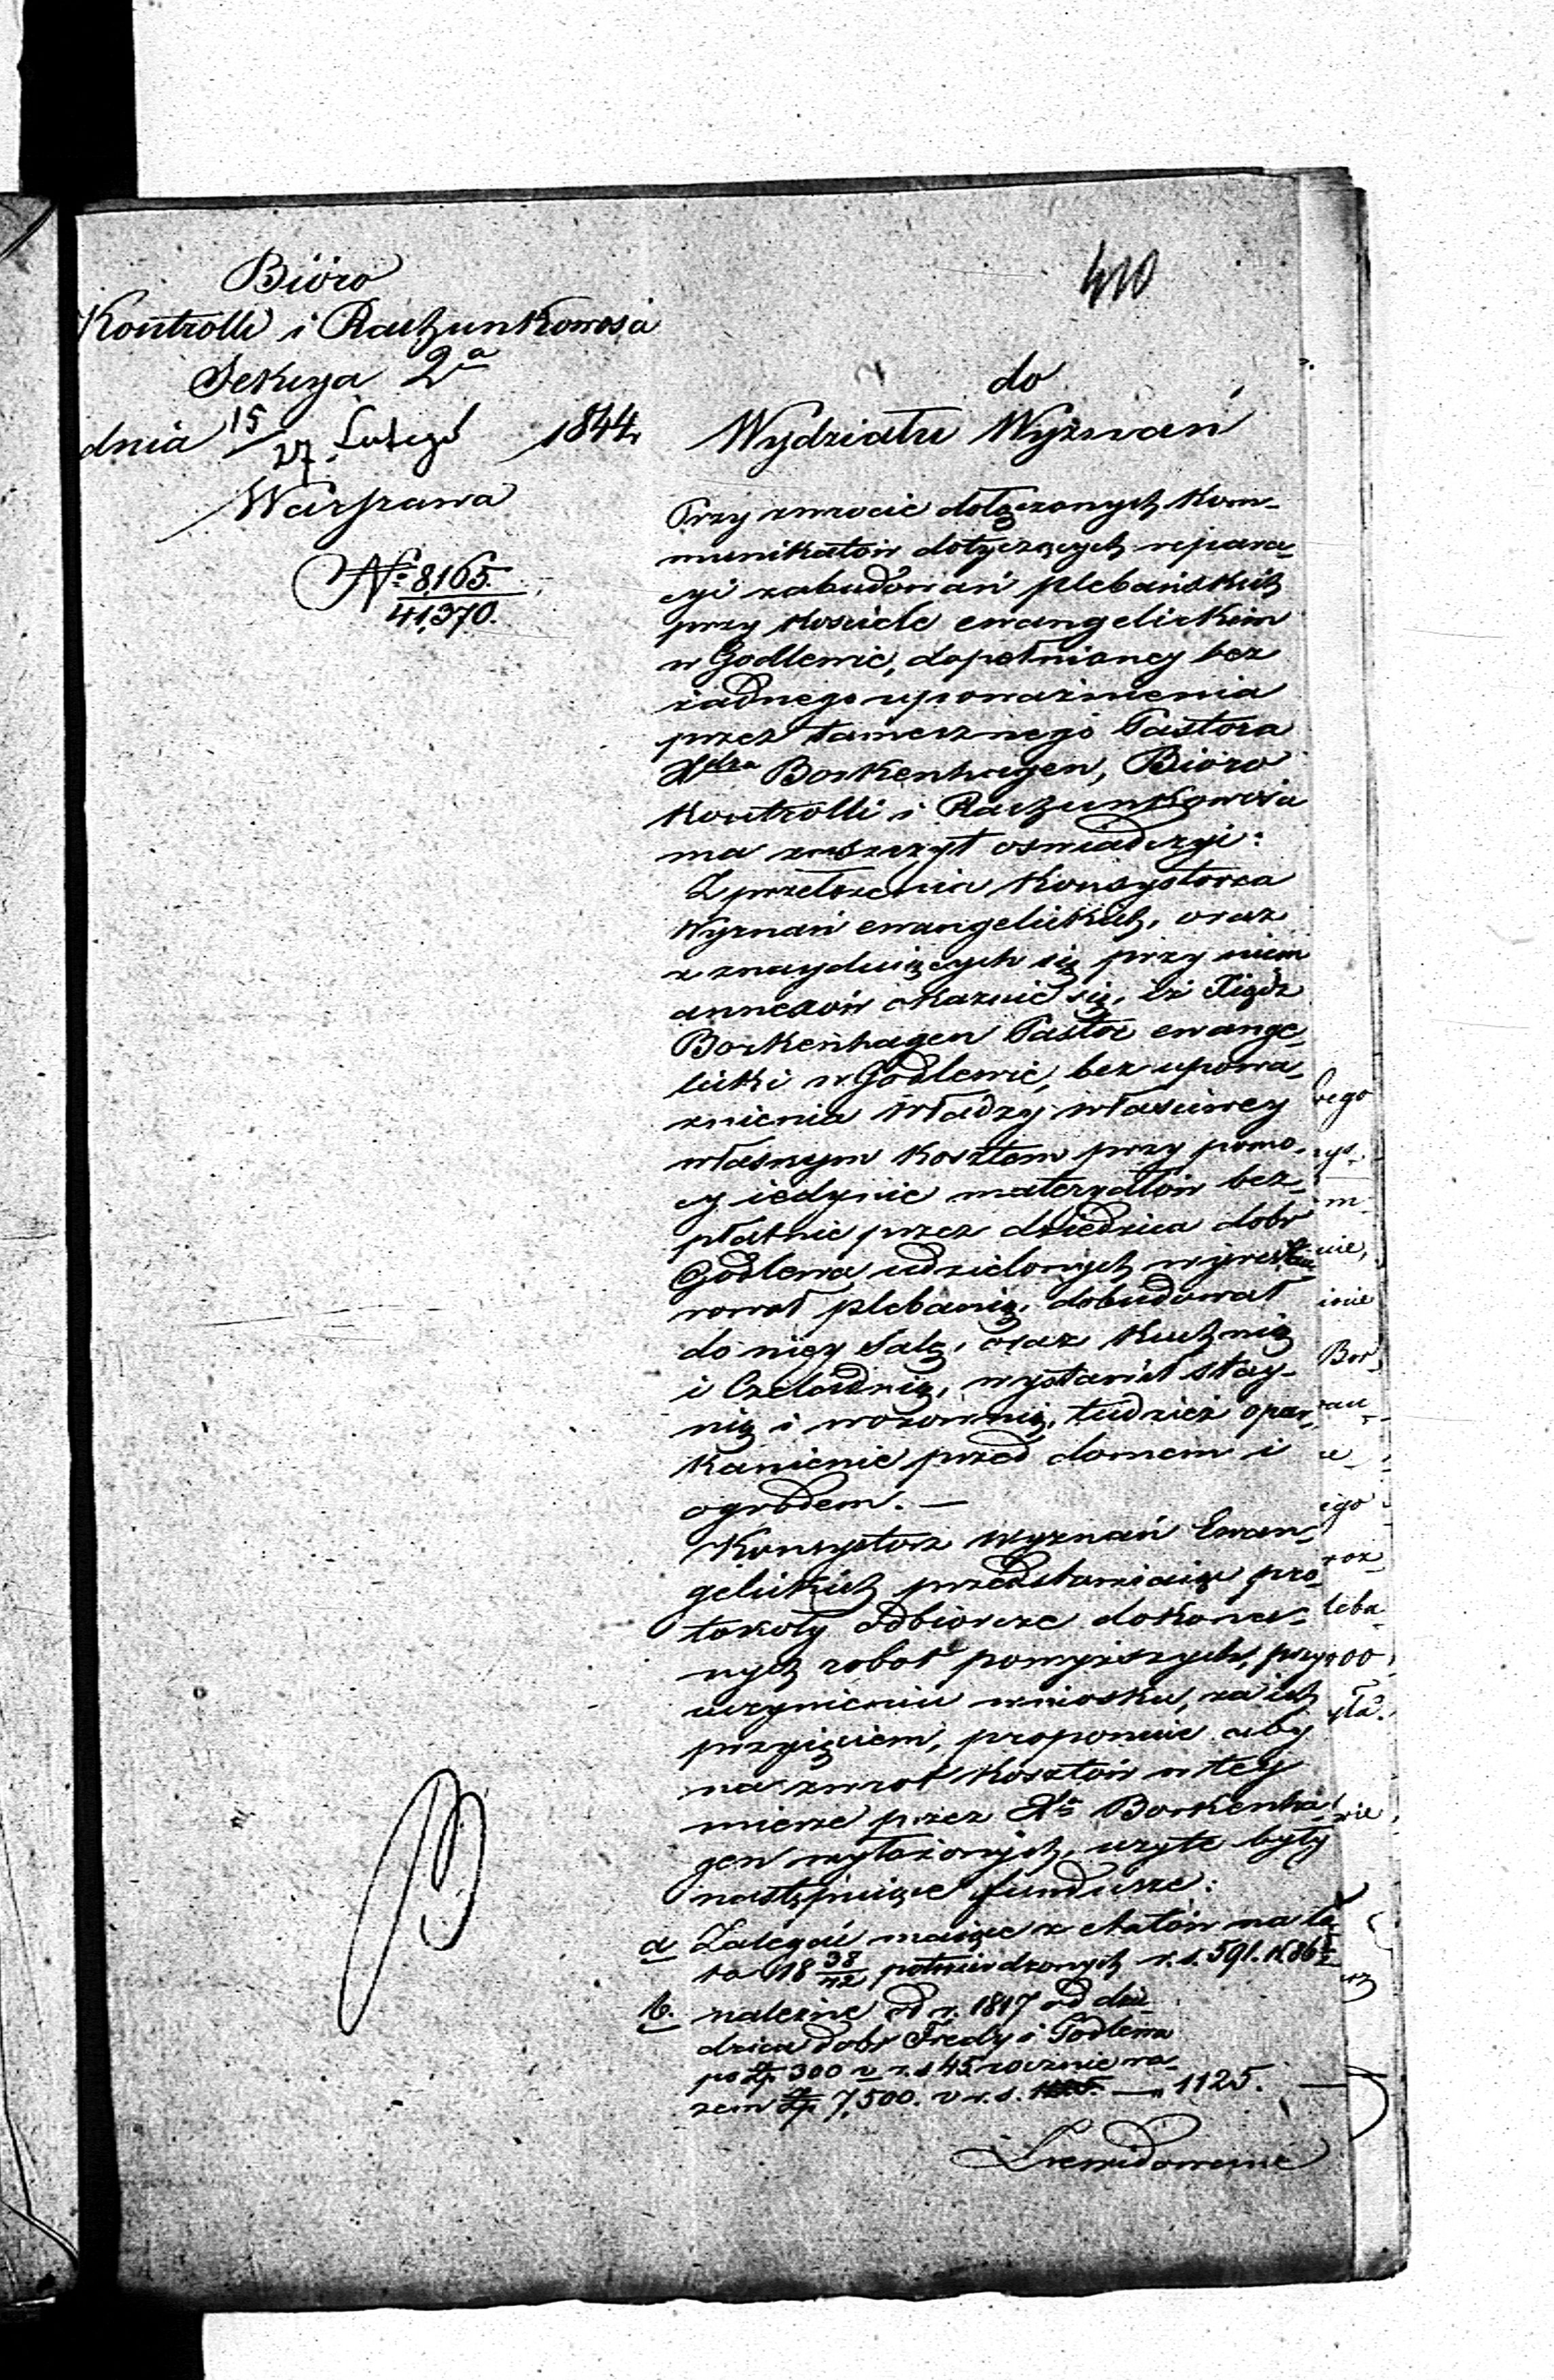 410
Bióro
Kontrolli i Rachunkowości
Sekcya 2a
dnia 15/27 Lutego 1844
Warszawa
No 8165.
41,370.
do
Wydziału Wyznań
Przy zwrocie dołączonych kom-
munikatów dotyczących repara-
cyi zabudowań plebańskich
przy kosciele ewangelickim
w Godlewie, dopełnioney bez
żadnego upoważnienia
przez tamecznego Pastora
Xdza Borkenhagen, Bióro
Kontrolli i Rachunkowości
ma zaszczyt oswiadczyć:
Z przełożenia Konsystorza
Wyznań ewangelickich, oraz
z znayduiących się przy niem
annexów okazuie się, iż Xiądz
Borkenhagen Pastor ewange-
licki w Godlewie, bez upowa-
żnienia Władzy właściwey
własnym kosztem przy pomo-
cy iedynie materyałów bez-
płatnie przez dziedzica dobr
Godlewa udzielonych wyresta-
rował plebanią, dobudował
do niey Salę, oraz kuchnią
i Czeladnią, wystawił stay-
nią i wozownią, tudzież opar-
kanienie przed domem i
ogrodem. —
Konsystorz wyznań Ewan-
gelickich przedstawiaiąc pro-
tokoły odbiorcze dokona-
nych robot powyższych, przy
uczynieniu wniosku, za ich
przyięciem, proponuie aby
na zwrot kosztów w tey
mierze przez Xa Borkenha-
gen wyłożonych, użyte były
następuiące fundusze:
a Zaledz maiące z etatów na la-
ta 18 38/42 potwierdzonych r. s. 591. k. 86 1/2
b. należne od r. 1817 od dzie-
dzica dobr Fredy i Godlewa
po Zp 300 v r. s. 45 rocznie ra-
zem Zp 7,500. v r. s. — " 1125.
Zrewidowanie